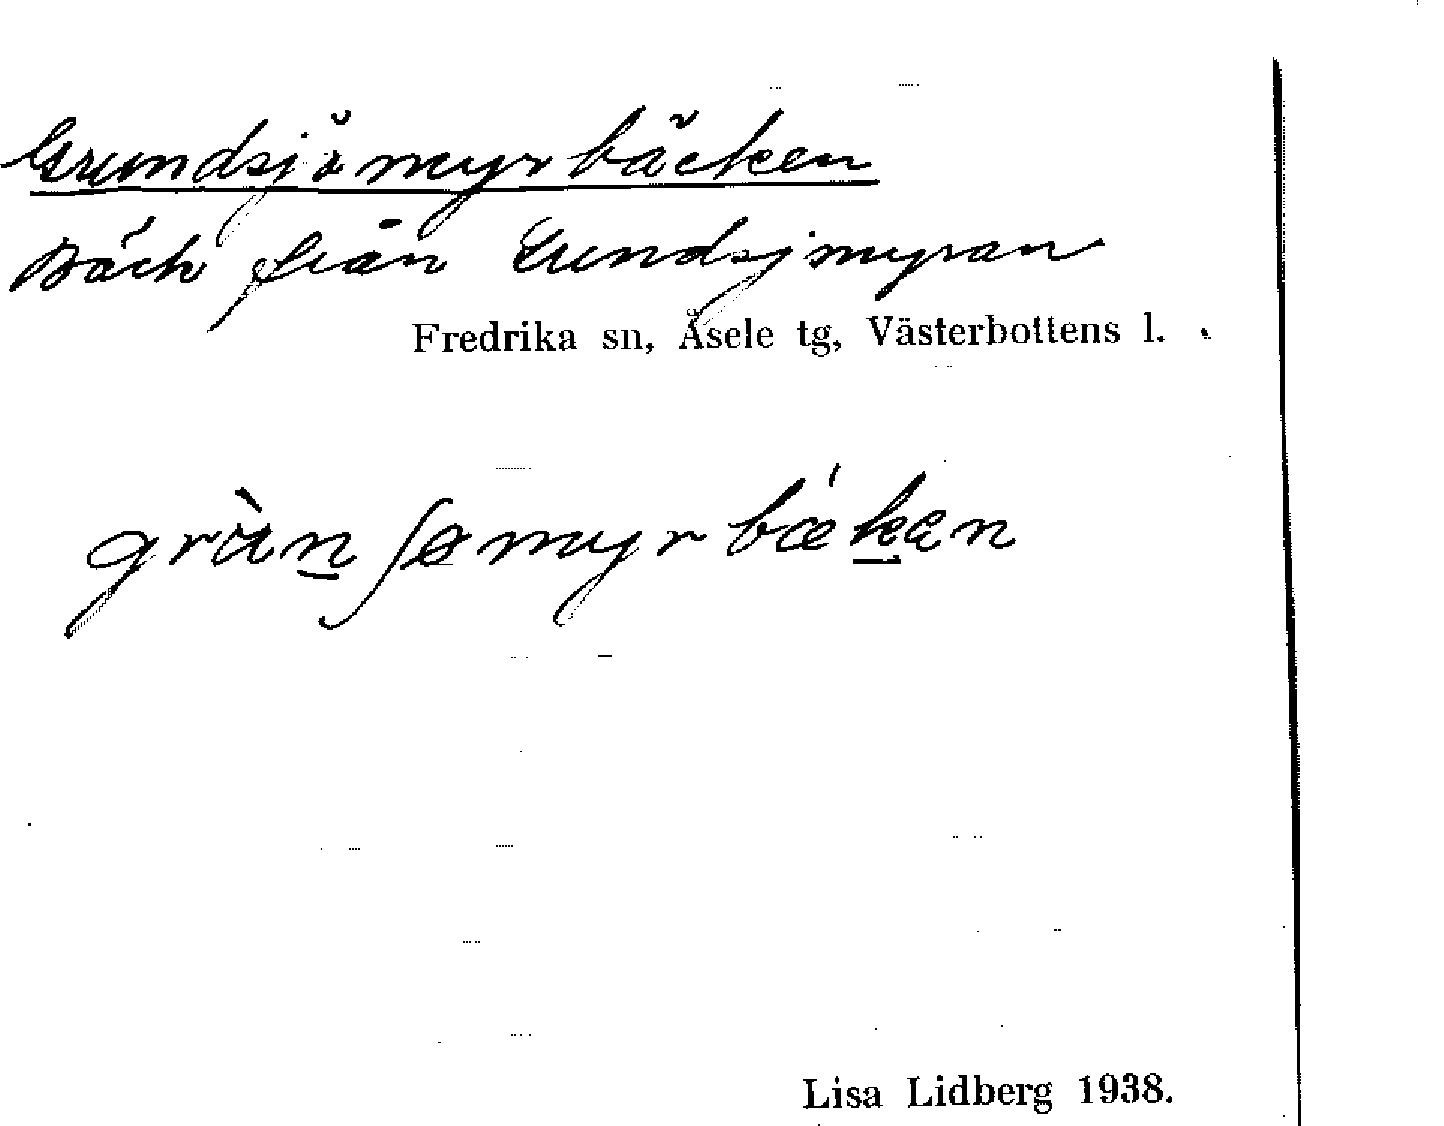 Grundsjömyrbäcken
Bäck från Grundsjmyran
Fredrika sn, Åsele tg, Västerbottens l.
grùn̲ʃømyrbǽk̲ən
Lisa Lidberg 1938.